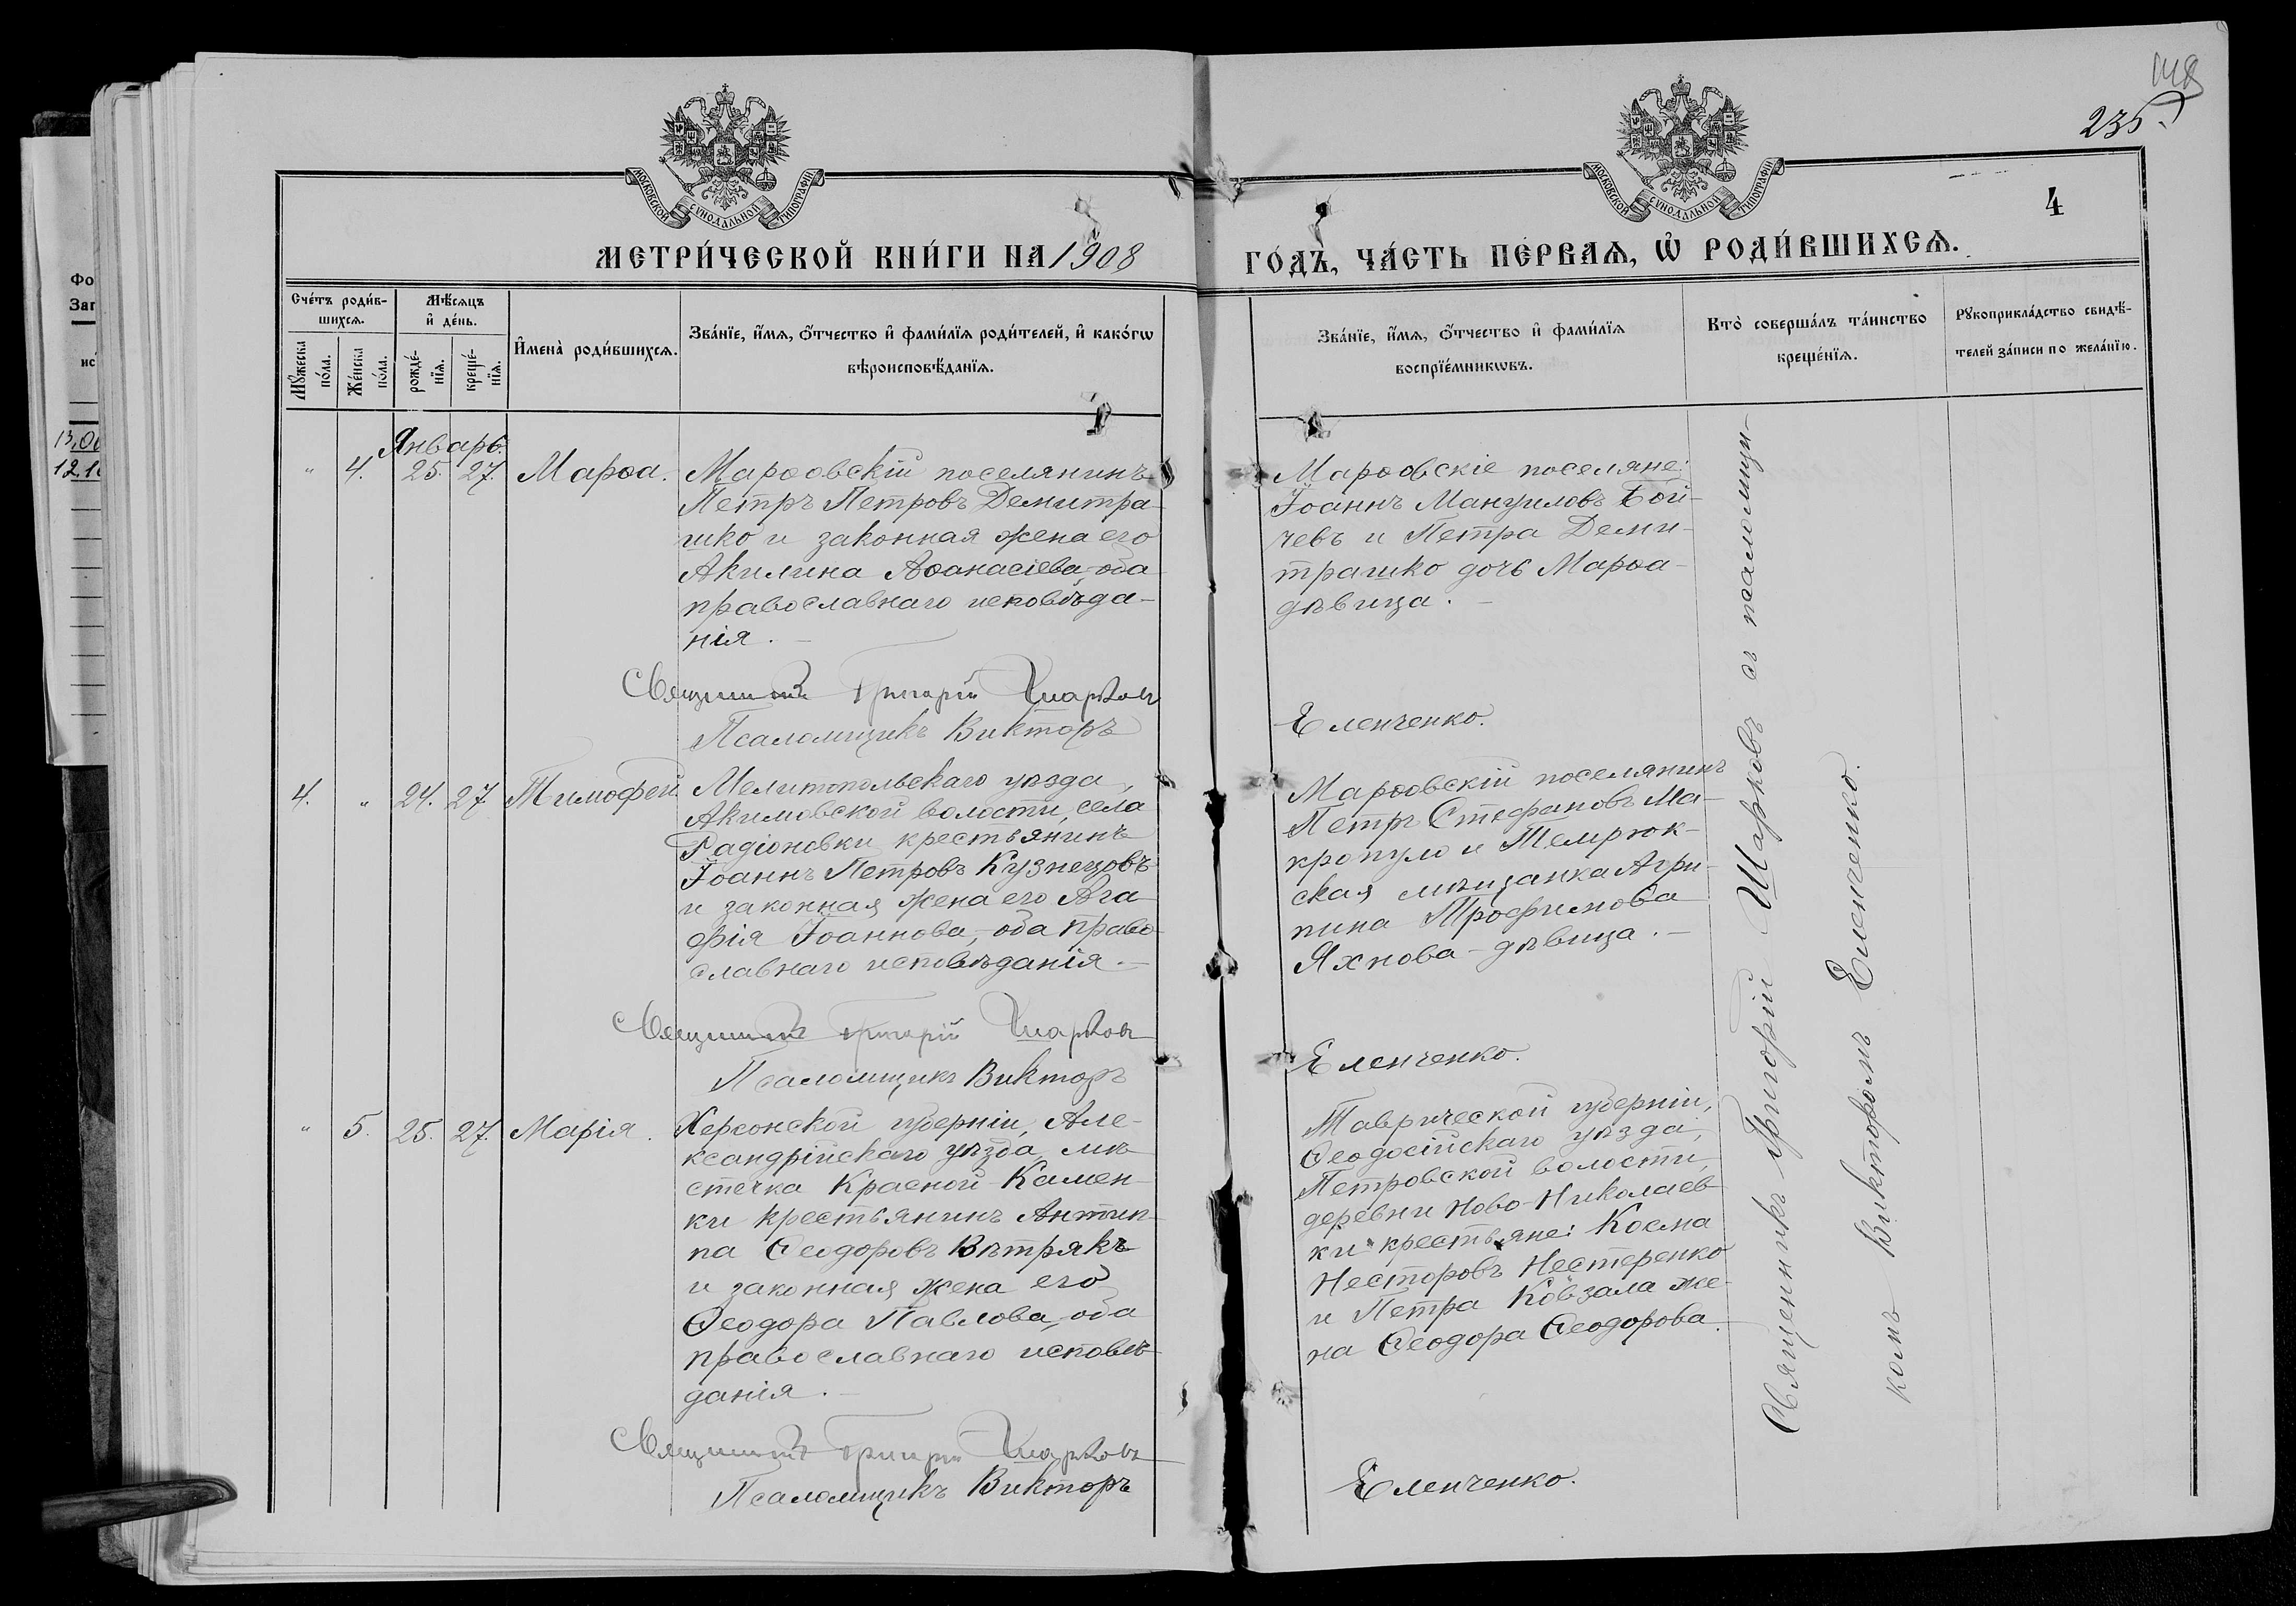 235.
4
МОСКОВСКОЙ СѴНОДАЛЬНОЙ ТИПОГРАФІИ
МОСКОВСКОЙ СѴНОДАЛЬНОЙ ТИПОГРАФІИ
МЕТРИ́ЧЕСКОЙ КНИ́ГИ НА 1908
ГО́ДЪ, ЧА́СТЬ ПЕ́РВАѦ, Ѡ҆ РОДИ́ВШИХСѦ.
Сче́тъ роди́в-
шихсѧ.
Мѣ́сѧцъ
и҆ де́нь.
Мꙋ́жеска
по́ла.
Же́нска
по́ла.
рожде́-
нїѧ.
креще́-
нїѧ.
И҆мена̀ роди́вшихсѧ.
Зва́нїе, и҆́мѧ, ѻ҆́тчество и҆ фами́лїѧ роди́телей, и҆ како́гѡ
вѣроисповѣ́данїѧ.
Зва́нїе, и҆́мѧ, ѻ҆́тчество и҆ фами́лїѧ
воспрїе́мникѡвъ.
Кто̀ соверша́лъ та́инство
креще́нїѧ.
Рꙋкоприкла́дство свидѣ́-
телей за́писи по жела́нїю.
Январь.
" 4. 25. 27. Марѳа.
Марѳовскій поселянинъ
Петръ Петровъ Демитра-
шко и законная жена его
Акилина Аѳанасіева, оба
православнаго исповѣда-
нія.
Священникъ Григорій Шарковъ
Псаломщикъ Викторъ
Марѳовскіе поселяне:
Іоаннъ Мануиловъ Бой-
чевъ и Петра Деми-
трашко дочь Марѳа-
дѣвица.
Еленченко.
4. " 24. 27. Тимофей
Мелитопольскаго уѣзда,
Акимовской волости, села
Радіоновки крестьянинъ
Іоаннъ Петровъ Кузнецовъ
и законная жена его Ага-
фія Іоаннова, оба право-
славнаго исповѣданія.
Священникъ Григорій Шарковъ
Псаломщикъ Викторъ
Марѳовскій поселянинъ
Петръ Стефановъ Ма-
кропуло и Темрюк-
ская мѣщанка Агри-
пина Трофимова
Яхнова - дѣвица.
Еленченко.
" 5. 25. 27. Марія.
Херсонской губерніи, Але-
ксандрійскаго уѣзда, мѣ-
стечка Красной-Камен-
ки крестьянинъ Антип-
па Ѳеодоровъ Вѣтрякъ
и законная жена его
Ѳеодора Павлова, оба
православнаго исповѣ-
данія.
Священникъ Григорій Шарковъ
Псаломщикъ Викторъ
Таврической губерніи,
Ѳеодосійскаго уѣзда,
Петровской волости,
деревни Ново-Николаев-
ки крестьяне: Косма
Несторовъ Нестеренко
и Петра Ковзала же-
на Ѳеодора Ѳеодорова.
Еленченко.
Священникъ Григорій Шарковъ съ псаломщи-
комъ Викторомъ Еленченко.
Фо
Заг
ис
12.1